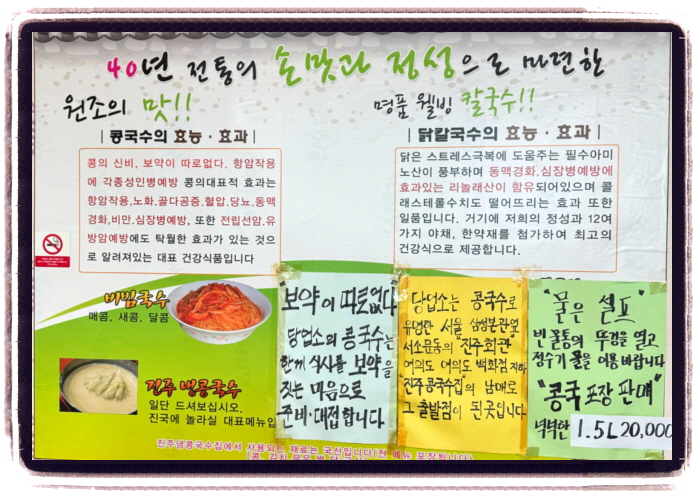 40년 전통의 손맛과 정성으로 마련한
원조의 맛!!
명품 웰빙 칼국수!!
| 콩국수의 효능 · 효과 |
콩의 신비, 보약이 따로없다. 항암작용
에 각종성인병예방 콩의대표적 효과는
항암작용,노화,골다공증,혈압,당뇨,동맥
경화,비만,심장병예방, 또한 전립선암·유
방암예방에도 탁월한 효과가 있는 것으
로 알려져있는 대표 건강식품입니다
| 닭칼국수의 효능 · 효과 |
닭은 스트레스극복에 도움주는 필수아미
노산이 풍부하며 동맥경화,심장병예방에
효과있는 리놀래산이 함유되어있으며 콜
래스테롤수치도 떨어뜨리는 효과 또한
일품입니다. 거기에 저희의 정성과 12여
가지 야채, 한약재를 첨가하여 최고의
건강식으로 제공합니다.
비빔국수
매콤, 새콤, 달콤
진주 냉콩국수
일단 드셔보십시오.
진국에 놀라실 대표메뉴입
"보약이 따로없다"
당업소의 콩국수는
한끼 식사를 보약을
짓는 마음으로
준비·대접합니다
당업소는 콩국수로
유명한 서울 삼성본관옆
서소문동의 진주회관
여의도 여의도 백화점 지하
진주 콩국수집의 남매로
그 출발점이 된곳입니다
"물은 셀프"
빈 물통의 뚜껑을 열고
정수기 물을 이용 바랍니다
"콩국 포장 판매"
넉넉한 1.5L 20,000
진주냉콩국수집에서 사용되는 재료는 국산입니다(전 메뉴 포장됩니다)